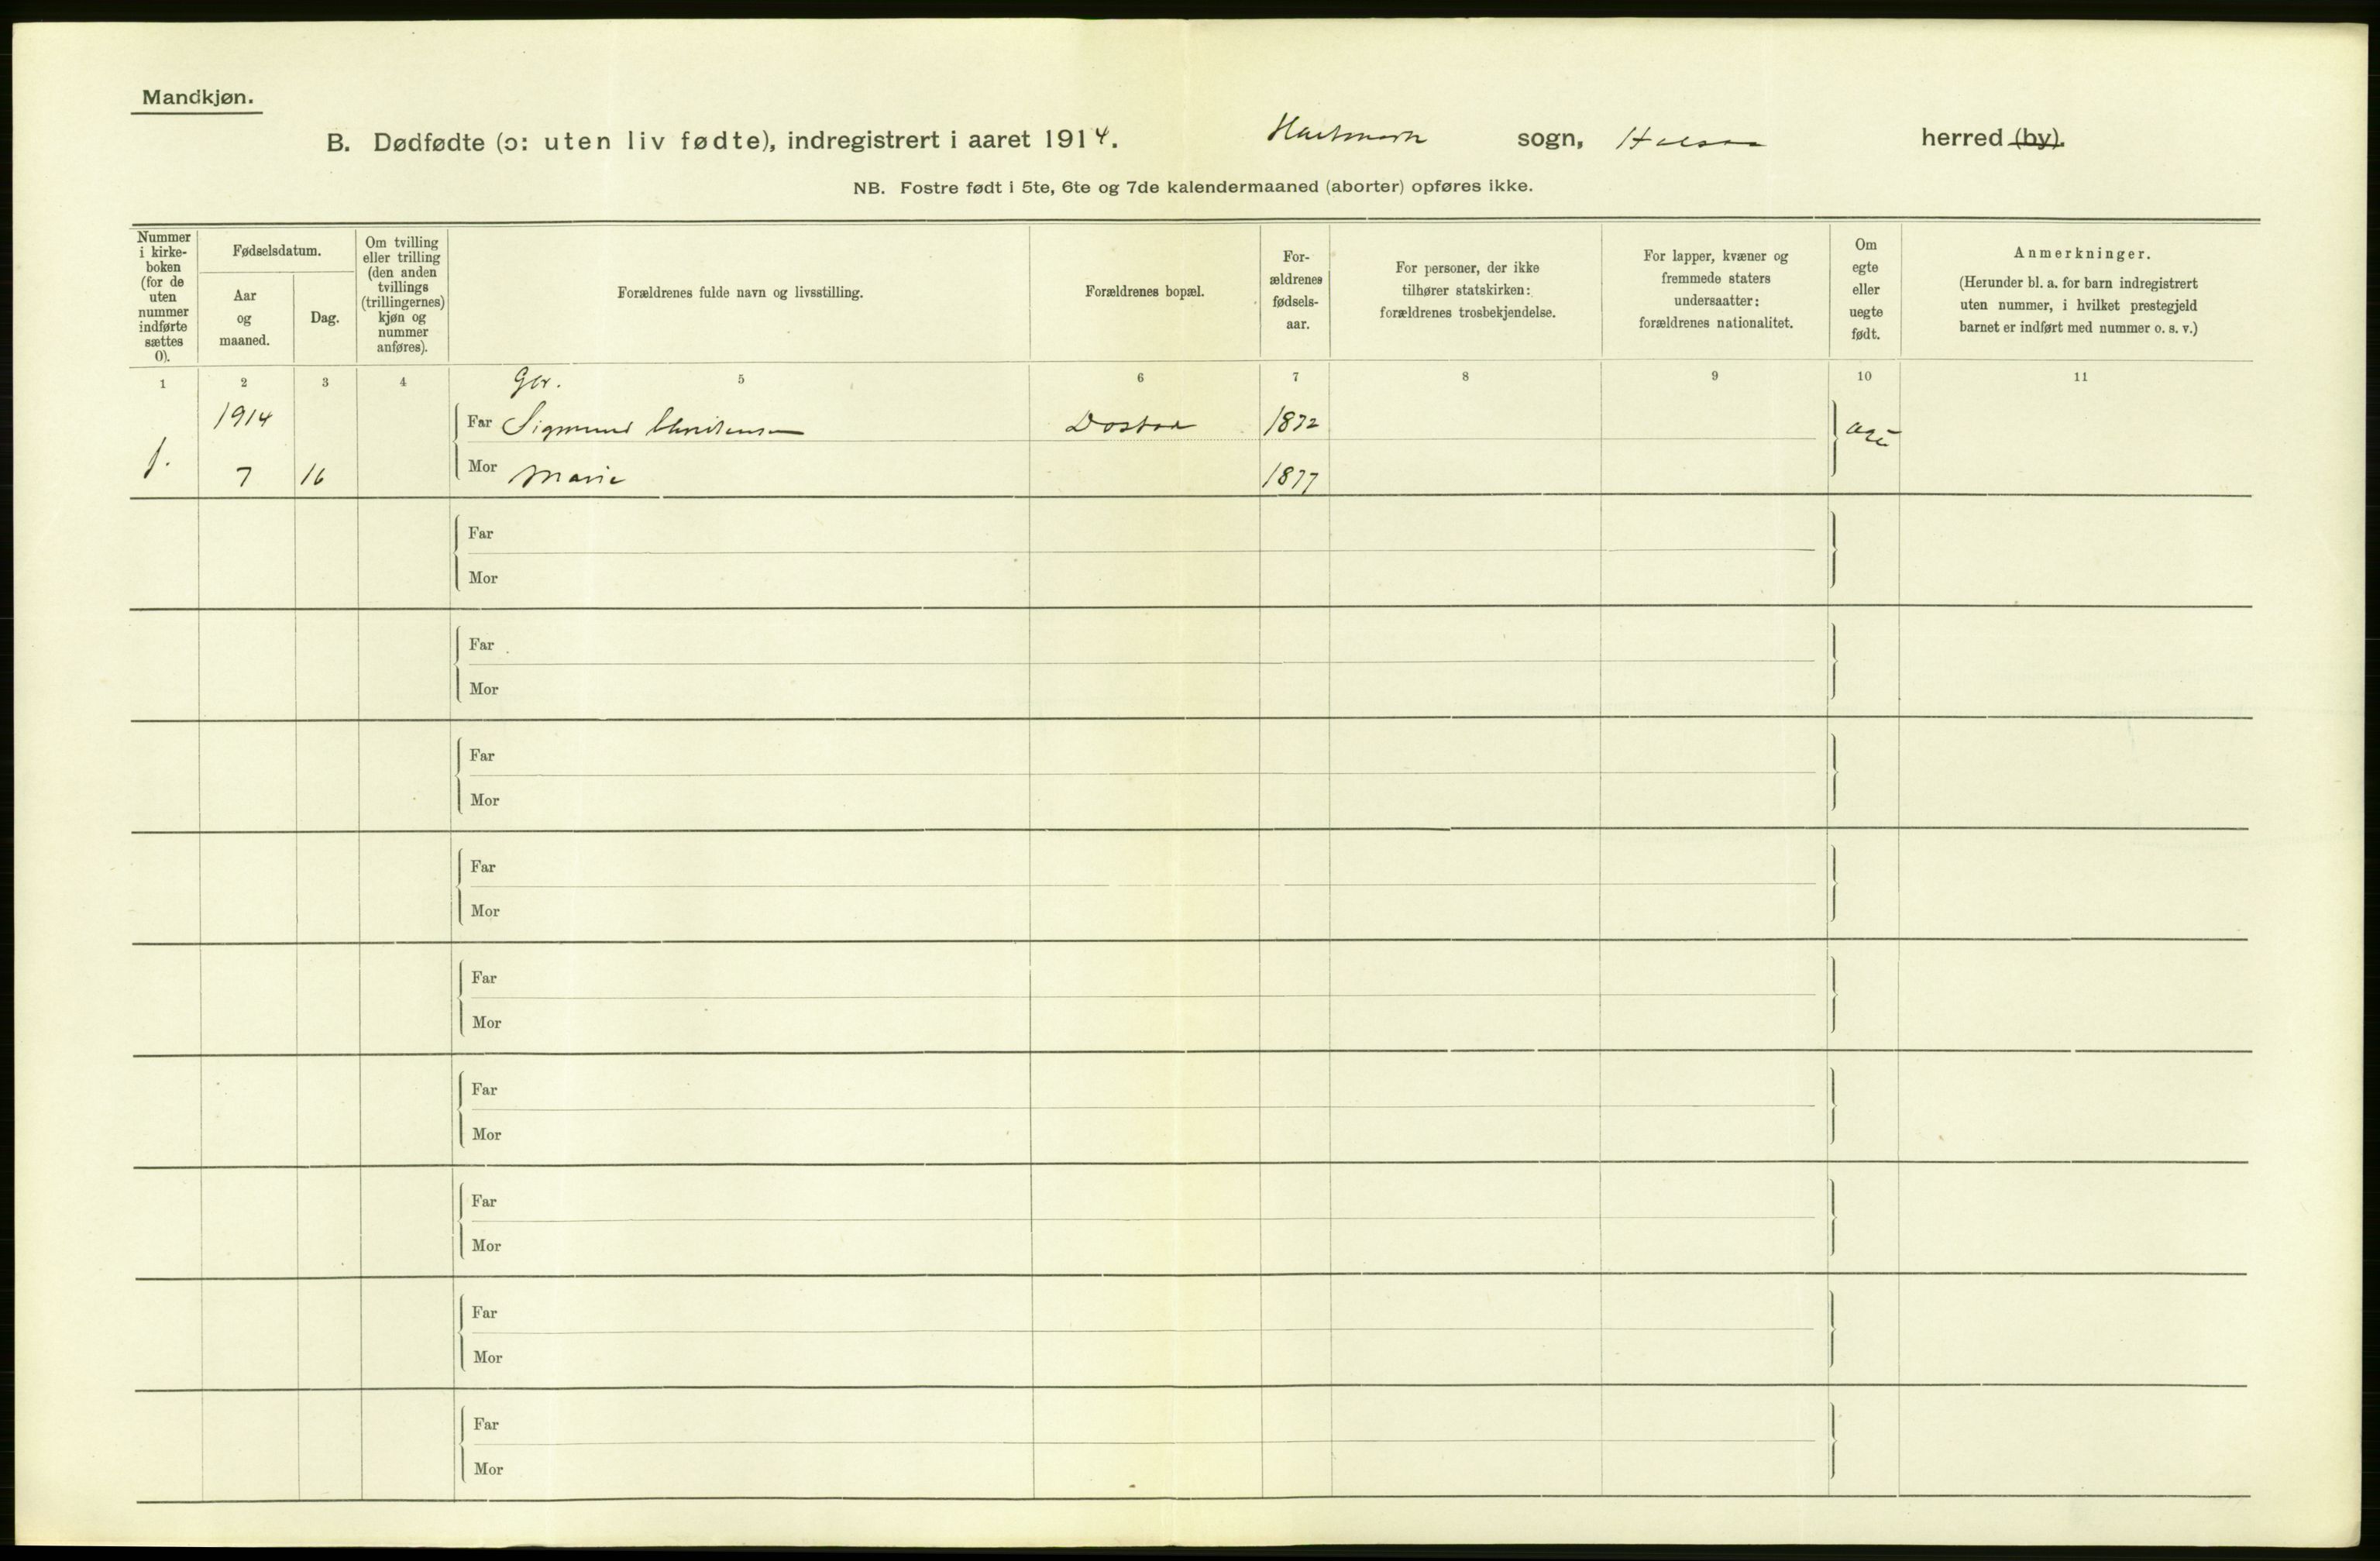 Mandkjøn.
B. Dødfødte (ɔ: uten liv fødte), indregistrert i aaret 1914. Hartmark sogn, Halsaa herred (by).
NB. Fostre født i 5te, 6te og 7de kalendermaaned (aborter) opføres ikke.
Nummer
i kirke-
boken
(for de
uten
nummer
indførte
sættes
0).
Fødselsdatum.
Aar
og
maaned.
Dag.
Om tvilling
eller trilling
(den anden
tvillings
(trillingernes)
kjøn og
nummer
anføres).
Forældrenes fulde navn og livsstilling.
Forældrenes bopæl.
For-
ældrenes
fødsels-
aar.
For personer, der ikke
tilhører statskirken:
forældrenes trosbekjendelse.
For lapper, kvæner og
fremmede staters
undersaatter:
forældrenes nationalitet.
Om
egte
eller
uegte
født.
Anmerkninger.
(Herunder bl. a. for barn indregistrert
uten nummer, i hvilket prestegjeld
barnet er indført med nummer o. s. v.)
1 2 3 4 5 6 7 8 9 10 11
1914 Far Sigmund 1872
1. 7 16 Mor Marie 1877
Far
Mor
Far
Mor
Far
Mor
Far
Mor
Far
Mor
Far
Mor
Far
Mor
Far
Mor
Far
Mor